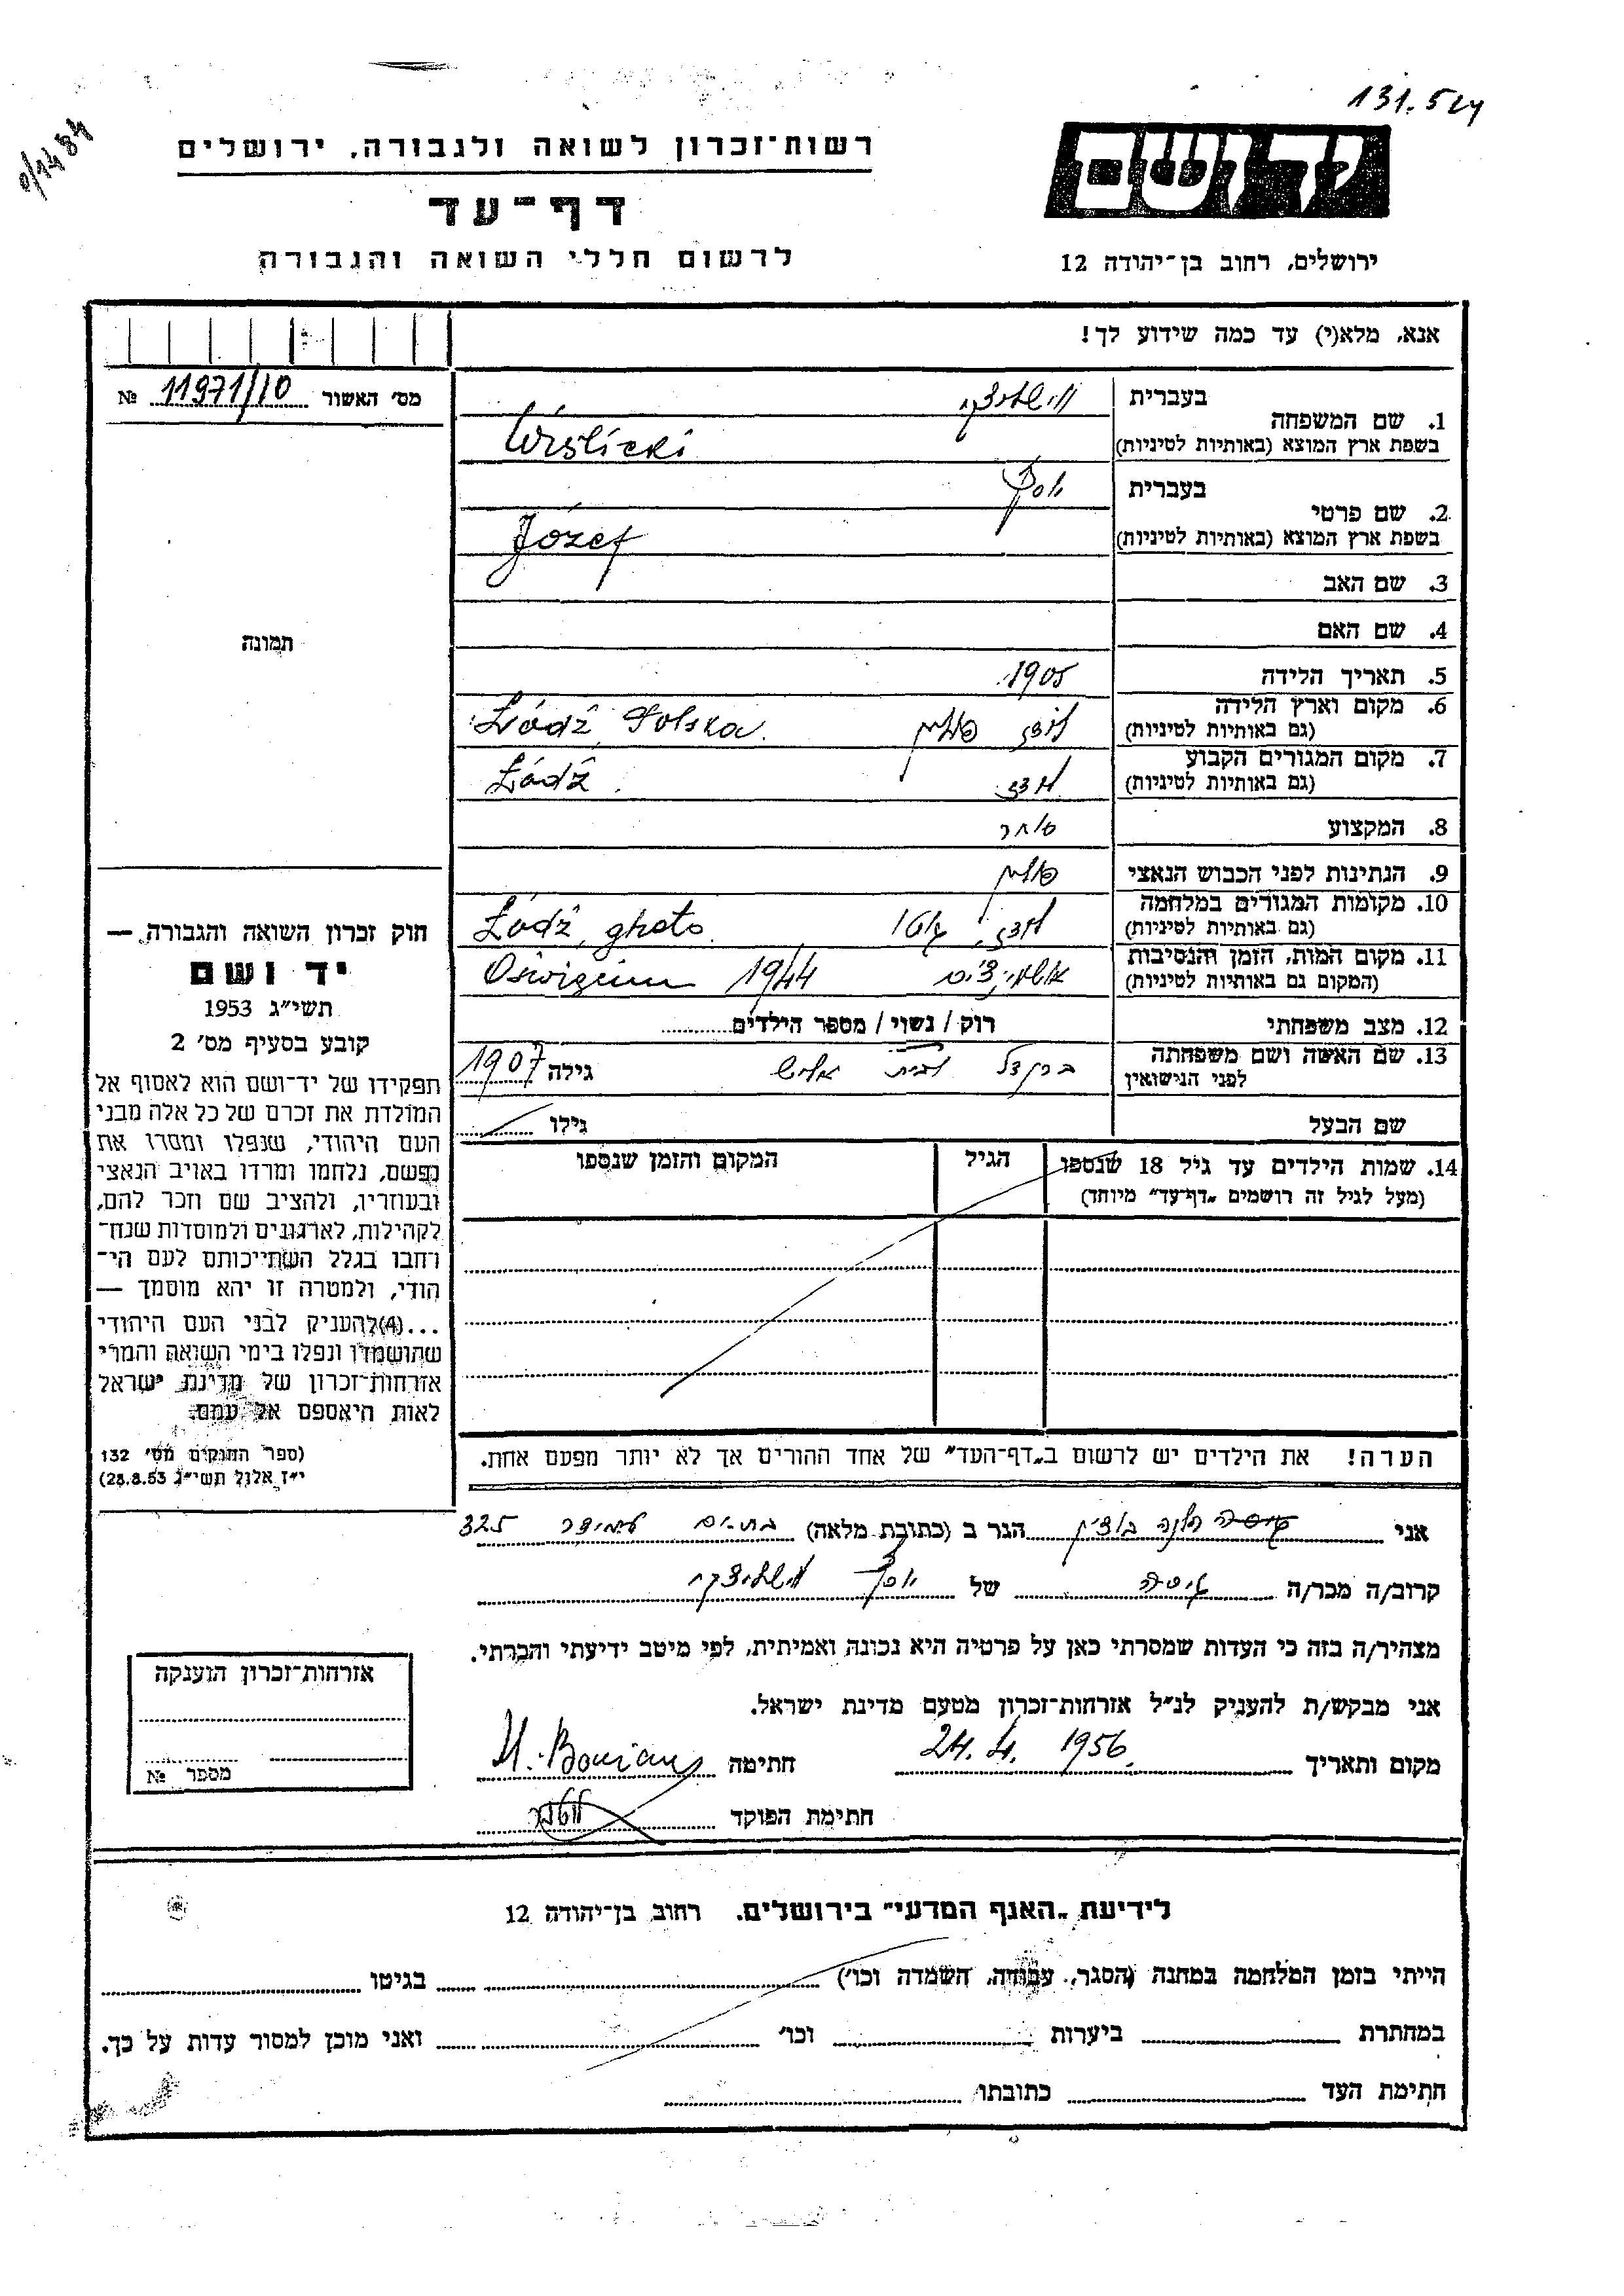 131.524
רשות־זכרון לשואה ולגבורה, ירושלים
דף־עד
לרשום חללי השואה והגבורה
יד ושם
ירושלים, רחוב בן־יהודה 12
אנא, מלא(י) עד כמה שידוע לך!
מס' האשור 11971/10 №
תמונה
1. שם המשפחה
בעברית וישליצקי
בשפת ארץ המוצא (באותיות לטיניות) Wiślicki
2. שם פרטי
בעברית יוסף
בשפת ארץ המוצא (באותיות לטיניות) Józef
3. שם האב
4. שם האם
5. תאריך הלידה 1905
6. מקום וארץ הלידה
(גם באותיות לטיניות) לודז פולין Łódź, Polska
7. מקום המגורים הקבוע
(גם באותיות לטיניות) לודז Łódź
8. המקצוע סוחר
9. הנתינות לפני הכבוש הנאצי פולין
10. מקומות המגורים במלחמה
(גם באותיות לטיניות) לודז, גטו Łódź, gheto
11. מקום המות, הזמן והנסיבות
(המקום גם באותיות לטיניות) אושויצים Oświęcim 1944
12. מצב משפחתי רוק / נשוי / מספר הילדים
13. שם האשה ושם משפחתה
לפני הנישואין לבית גילה 1907
שם הבעל גילו
14. שמות הילדים עד גיל 18 שנספו
(מעל לגיל זה רושמים „דף־עד" מיוחד)
הגיל
המקום והזמן שנספו
הערה! את הילדים יש לרשום ב„דף־העד" של אחד ההורים אך לא יותר מפעם אחת.
חוק זכרון השואה והגבורה —
יד ושם
תשי״ג 1953
קובע בסעיף מס' 2
תפקידו של יד־ושם הוא לאסוף אל
המולדת את זכרם של כל אלה מבני
העם היהודי, שנפלו ומסרו את
נפשם, נלחמו ומרדו באויב הנאצי
ובעוזריו, ולהציב שם וזכר להם,
לקהילות, לארגונים ולמוסדות שנח־
רחבו בגלל השתייכותם לעם הי־
הודי, ולמטרה זו יהא מוסמך —
...(4)להעניק לבני העם היהודי
שהושמדו ונפלו בימי השואה והמרי
אזרחות־זכרון של מדינת ישראל
לאות היאספם אל עמם.
(ספר החוקים מס' 132
י״ז אלול תשי״ג 28.8.53)
אני הלנה הגר ב (כתובת מלאה) בת־ים עמידר 325
קרוב/ה מכר/ה גיסה של יוסף וישליצקי
מצהיר/ה בזה כי העדות שמסרתי כאן על פרטיה היא נכונה ואמיתית, לפי מיטב ידיעתי והכרתי.
אני מבקש/ת להעניק לנ״ל אזרחות־זכרון מטעם מדינת ישראל.
מקום ותאריך 24. 4. 1956. חתימה
חתימת הפוקד
אזרחות־זכרון הוענקה
מספר №
לידיעת „האגף המדעי" בירושלים, רחוב בן־יהודה 12
הייתי בזמן המלחמה במחנה (הסגר, עבודה, השמדה וכו') בגיטו
במחתרת ביערות וכו' ואני מוכן למסור עדות על כך.
חתימת העד כתובתו